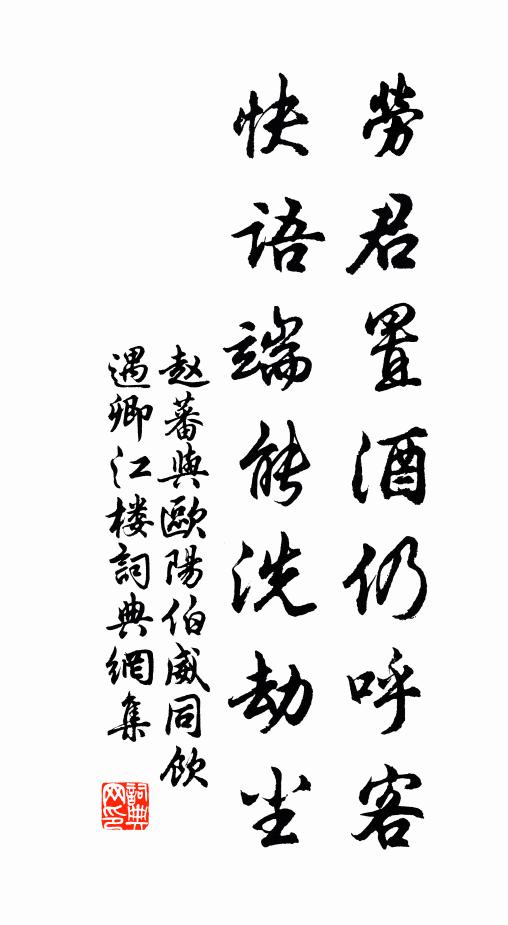 勞君置酒仍呼客
快语端能洗劫尘
赵蕃與歐陽伯威同飲
遇卿江楼詞典網集
詞典网印